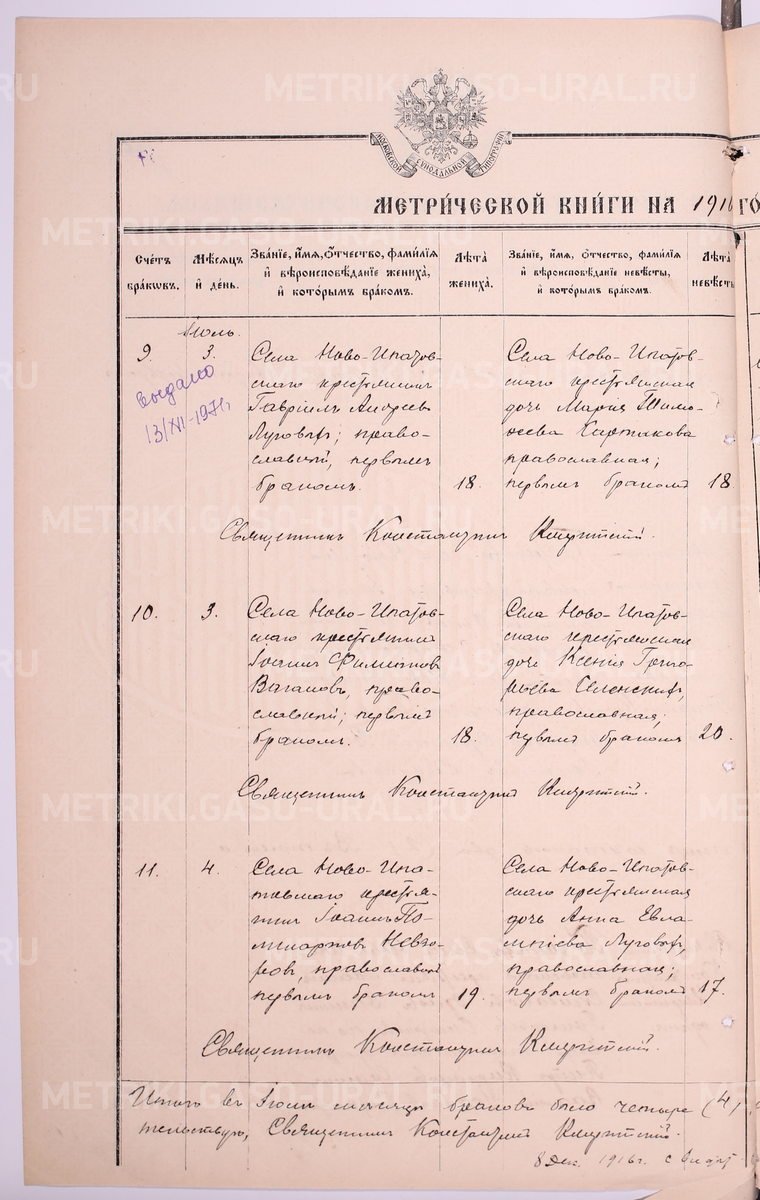 МОСКОВСКОЙ СѴНОДАЛЬНОЙ ТИПОГРАФІИ
МЕТРИ́ЧЕСКОЙ КНИ́ГИ НА 1916 ГО
Сче́тъ бра́кѡвъ.
Мѣ́сяцъ и҆ де́нь.
Зва́нїе, и҆́мя, ѻ҆́тчество, фами́лїя и҆ вѣроисповѣ́данїе жениха̀, и҆ кото́рымъ бра́комъ.
Лѣ́та жениха̀.
Зва́нїе, и҆́мя, ѻ҆́тчество, фами́лїя и҆ вѣроисповѣ́данїе невѣ́сты, и҆ кото́рымъ бра́комъ.
Лѣ́та невѣ́сты
Іюль.
9.
3.
выдано
13/XI-197
Села Ново-Ипатов-
скаго крестьянинъ
Гавріилъ Андреевъ
Луговыхъ; право-
славный, первымъ
бракомъ.
18.
Села Ново-Ипатов-
скаго крестьянская
дочь Марія Тимо-
ѳеева
православная;
первымъ бракомъ
18.
Священникъ Константинъ
10.
3.
Села Ново-Ипатов-
скаго крестьянинъ
Іоаннъ
Вагановъ, право-
славный; первымъ
бракомъ.
18.
Села Ново-Ипатов-
скаго крестьянская
дочь Ксенія Григо-
рьева
православная;
первымъ бракомъ
20.
Священникъ Константинъ
11.
4.
Села Ново-Ипа-
товскаго крестья-
нинъ Іоаннъ По-
ликарповъ Невзо-
ровъ, православный
первымъ бракомъ
19.
Села Ново-Ипатов-
скаго крестьянская
дочь Анна Евла-
мпіева Луговыхъ,
православная;
первымъ бракомъ
17.
Священникъ Константинъ
Итого въ Іюлѣ мѣсяцѣ браковъ было четыре (4),
тельствую, Священникъ Константинъ
8 Дек. 1916г.
METRIKI.GASO-URAL.RU